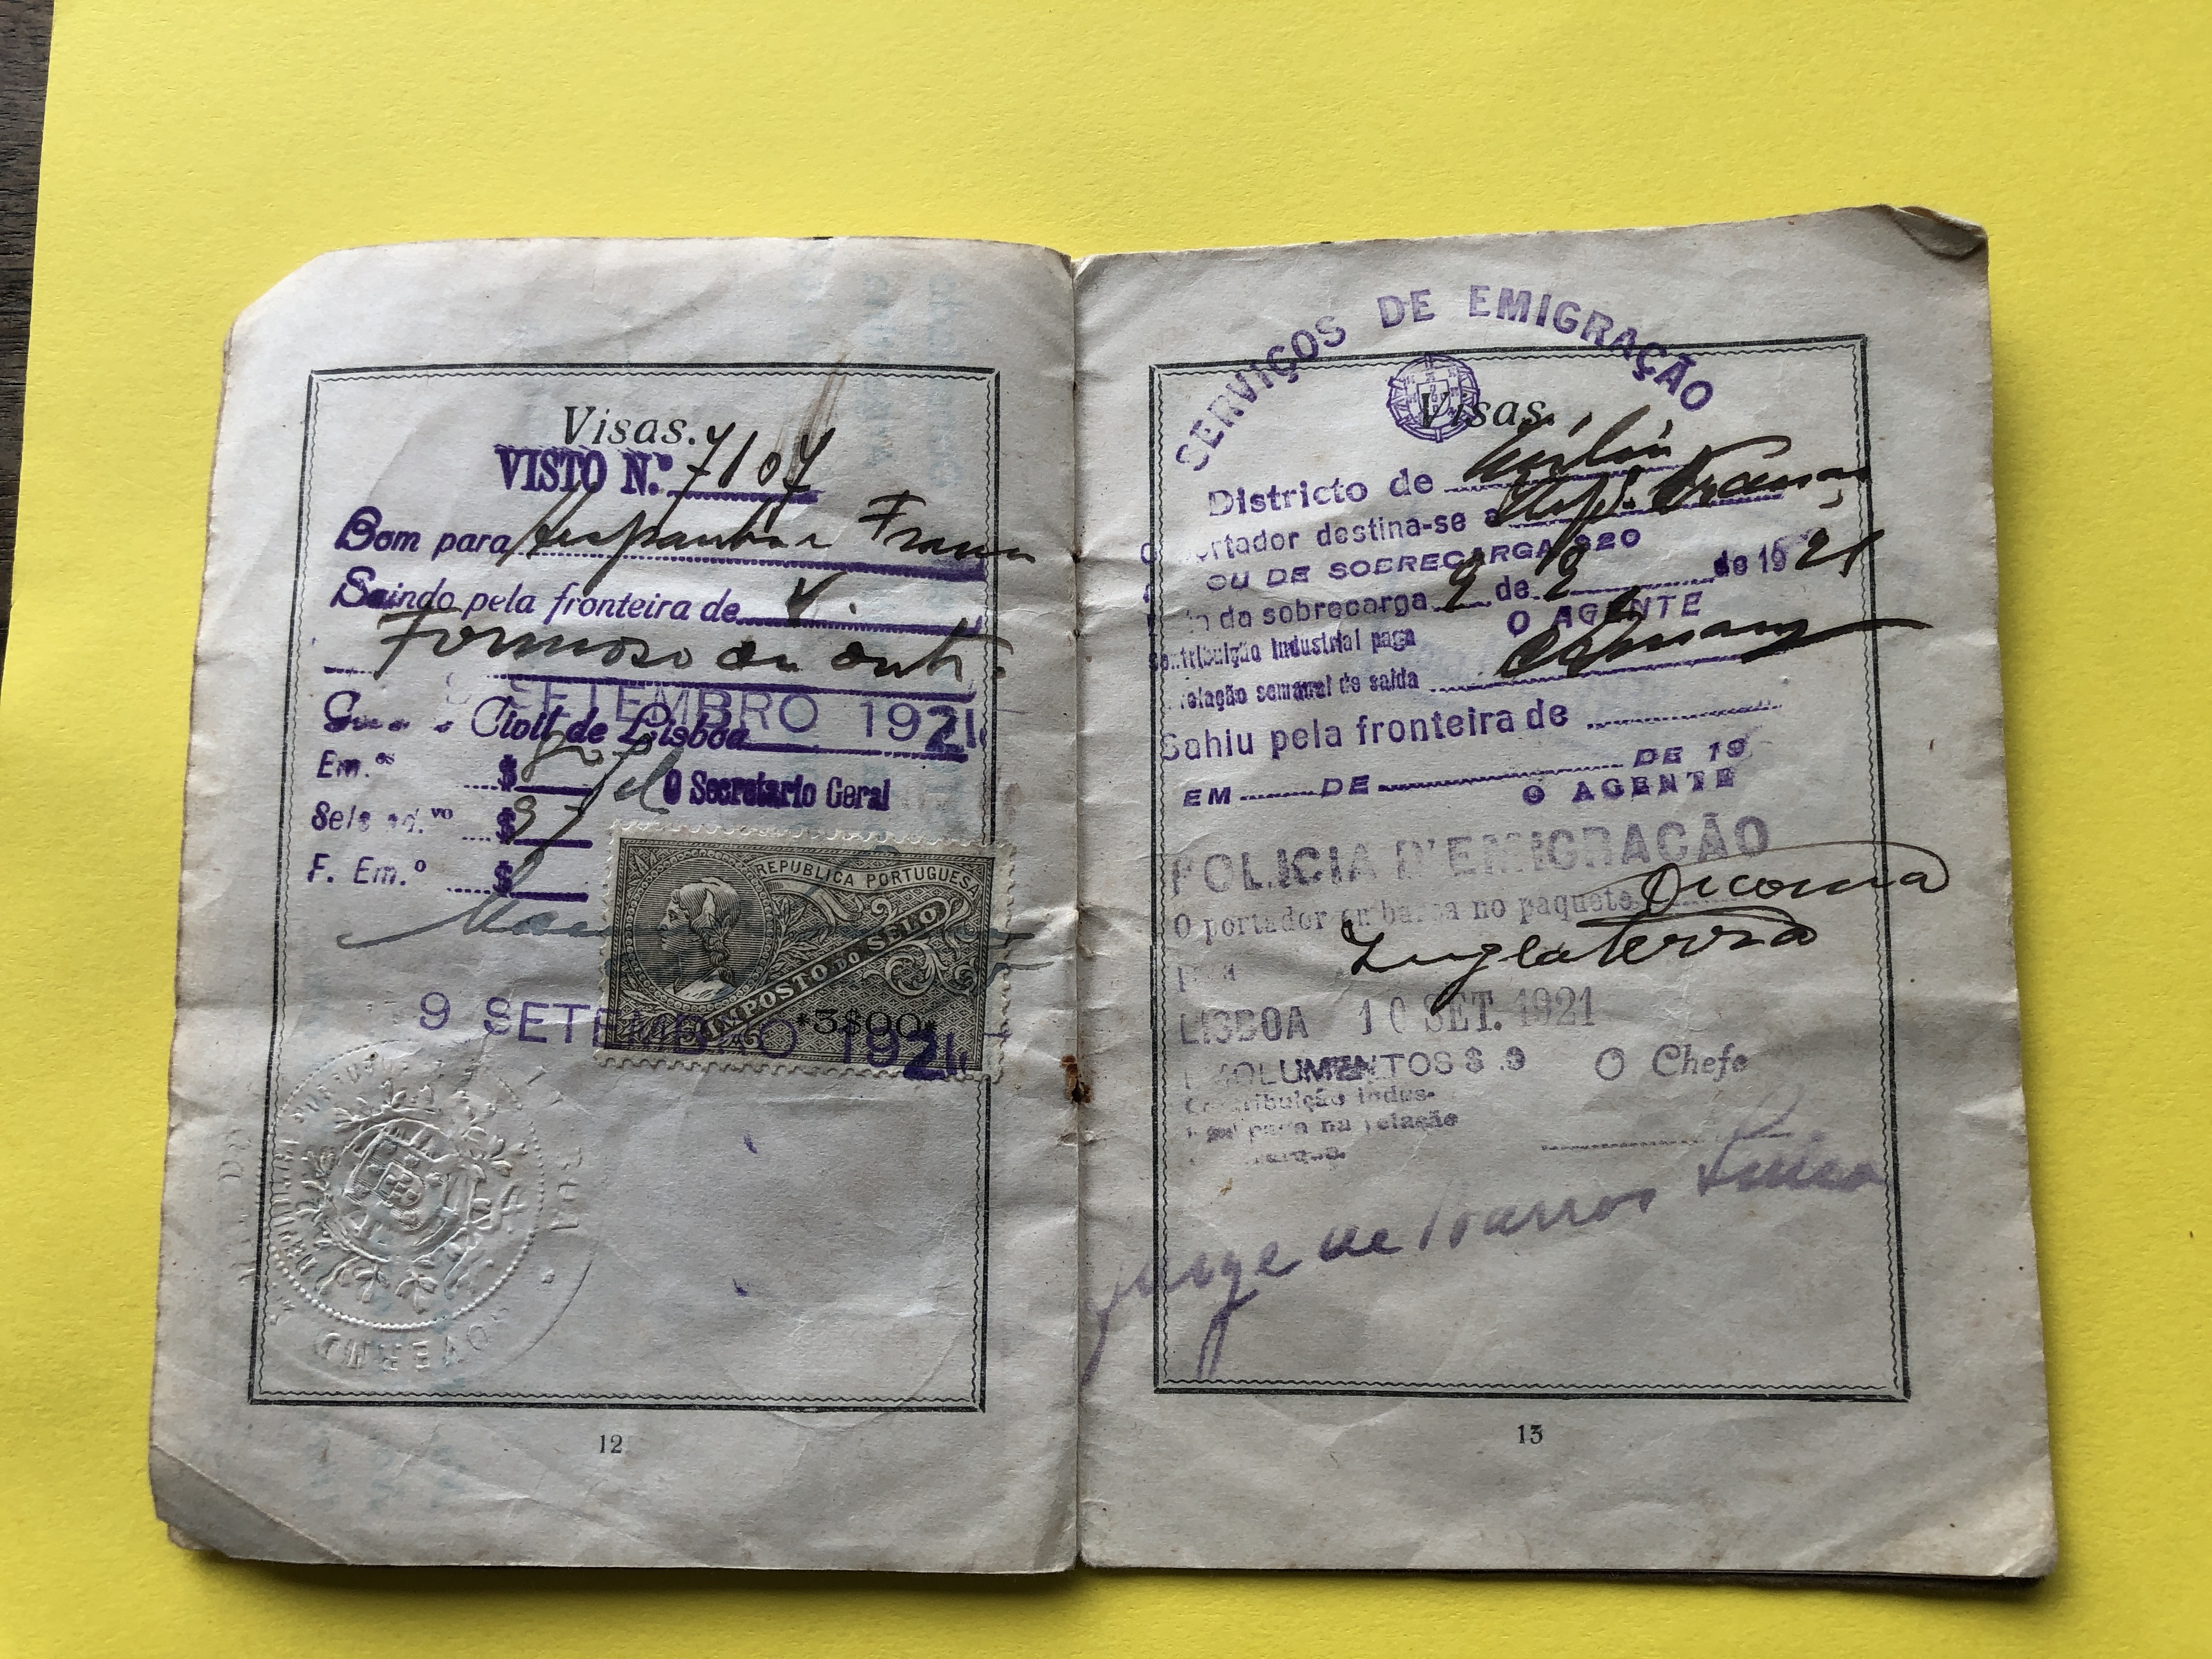 Visas.
VISTO N.º 7107
Bom para Hespanha e França
Saindo pela fronteira de V.
Formoso ou outr.
SETEMBRO 1921
Civil de Lisboa
Em.os $
O Secretario Geral
$
F. Em.º $
REPUBLICA PORTUGUESA
IMPOSTO DO SELO
*3$00*
9 SETEMBRO 1921
GOVERNO
12
SERVIÇOS DE EMIGRAÇÃO
Visas.
Districto de
portador destina-se a
OU DE SOBRECARGA $20
da sobrecarga 9 de de 1921
O AGENTE
Contribuição Industrial paga
relação semanal de saida
Sahiu pela fronteira de
EM DE DE 19
O AGENTE
POLICIA D'EMIGRAÇÃO
O portador embarca no paquete Orcoma
para Inglaterra
LISBOA 10 SET. 1921
EMOLUMENTOS $ .9 O Chefe
Contribuição indus-
paga na relação
Jorge de Barros
13